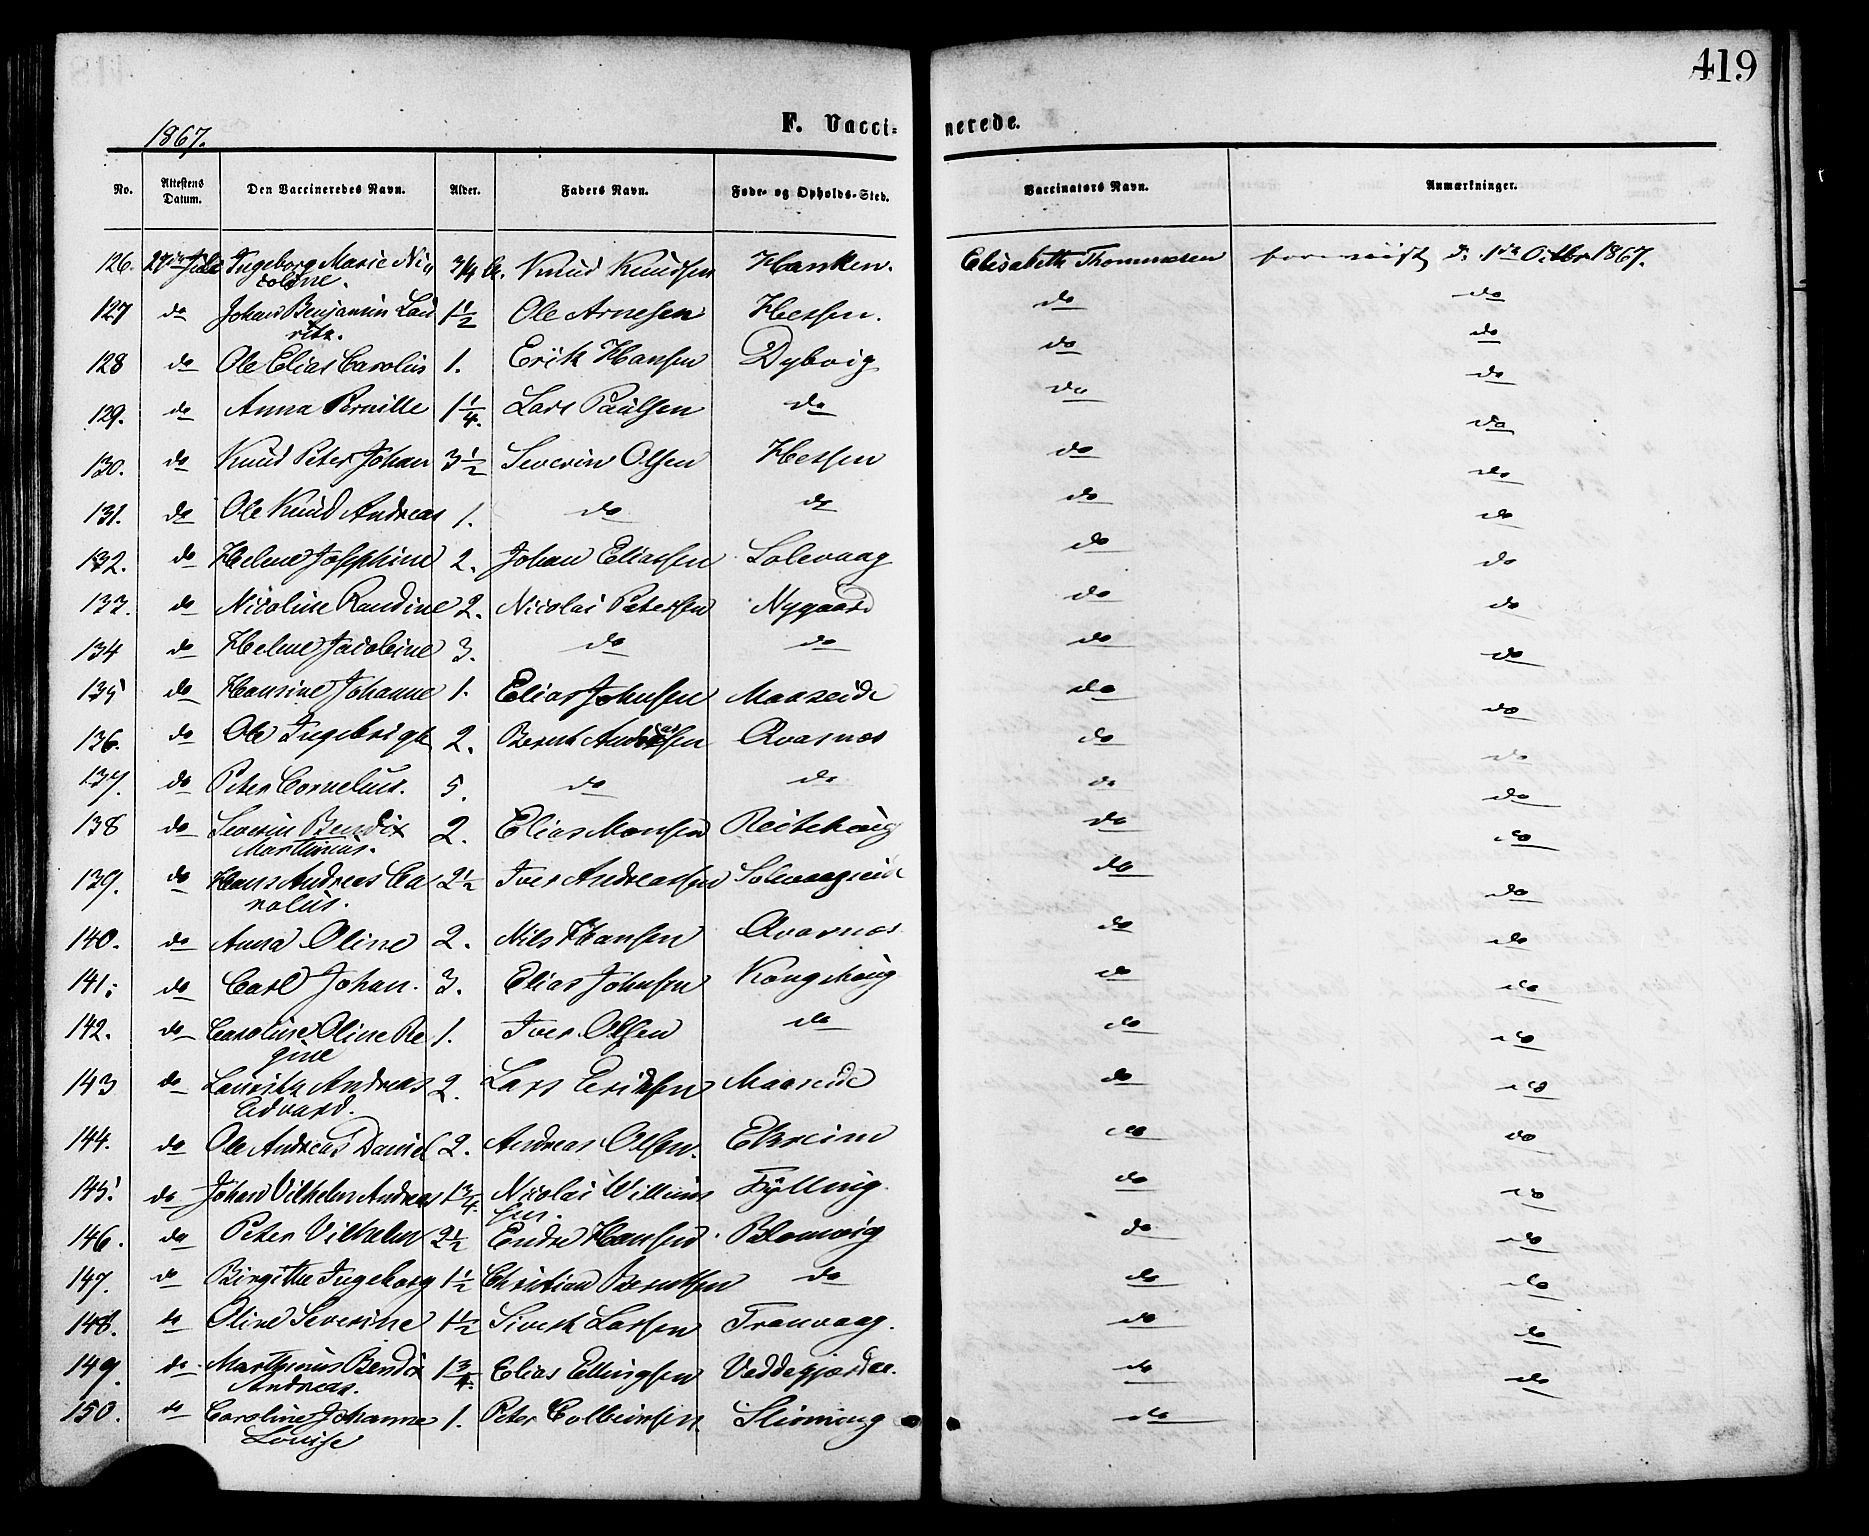 419
F. Vacci-
nerede.
1867.
No. Attestens Datum. Den Vaccineredes Navn. Alder. Faders Navn. Føde- og Opholds-Sted. Vaccinators Navn. Anmærkninger.
126. Ingeborg Marie Ni¬ 3/4 Knud Knudsen Hansken. Elisabeth Thommesen d. 1ste Octbr 1867.
coline.
127 do Johan Benjamin Lau 1 1/2 Ole Arnesen Hessen. do do
ritz.
128 do Ole Elias Carolus 1. Erik Hansen Dybvig do do
129. do Anna Pernille 1 1/4. Lars Paulsen do do do
130. do Knud Peter Johan 3 1/2 Severin Olsen Hessen do do
131. do Ole Knud Andreas 1. do do do do
132. do Helene Josephine 2. Johan Eliassen Solevaag do do
133. do Nicoline Randine 2. Nicolai Petersen Nygaard do do
134 do Helene Jacobine 3. do do do do
135 do Hansine Johanne 1. Elias Johnsen Maaseide do do
136. do Ole Ingebrigt 2. Bernt Andreassen Qvasnæs do do
137. do Peter Cornelius. 5. do do do do
138 do Severin Bendix 2. Elias Monsen Reitehaug do do
Martinius.
139. do Hans Andreas Ca 2 1/2 Iver Andreassen Solevaagseide do do
rolus.
140. do Anna Oline 2. Nils Hansen Qvasnæs do do
141. do Carl Johan. 3. Elias Johnsen Kongshaug do do
142. do Caroline Oline Re 1. Iver Olsen do do do
gine
143 do Lauritz Andreas 2. Lars Eriksen Maaseide do do
Edvard.
144. do Ole Andreas Daniel 2. Andreas Olsen. Ekreim do do
145. do Johan Vilhelm Andreas 1 3/4. Nicolai Willum Fylling. do do
sen.
146. do Peter Vilhelm 2 1/2 Endre Hansen Blomvig do do
147. do Birgithe Ingeborg 1 1/2 Christian Berntsen do do do
148. do Oline Severine 1 1/2 Sivert Larsen Tranvaag. do do
149. do Marthinus Bendix 1 3/4. Elias Ellingsen Veddegjærdet. do do
Andreas.
150. do Caroline Johanne 1. Peter Colbeinsen. do
Louise